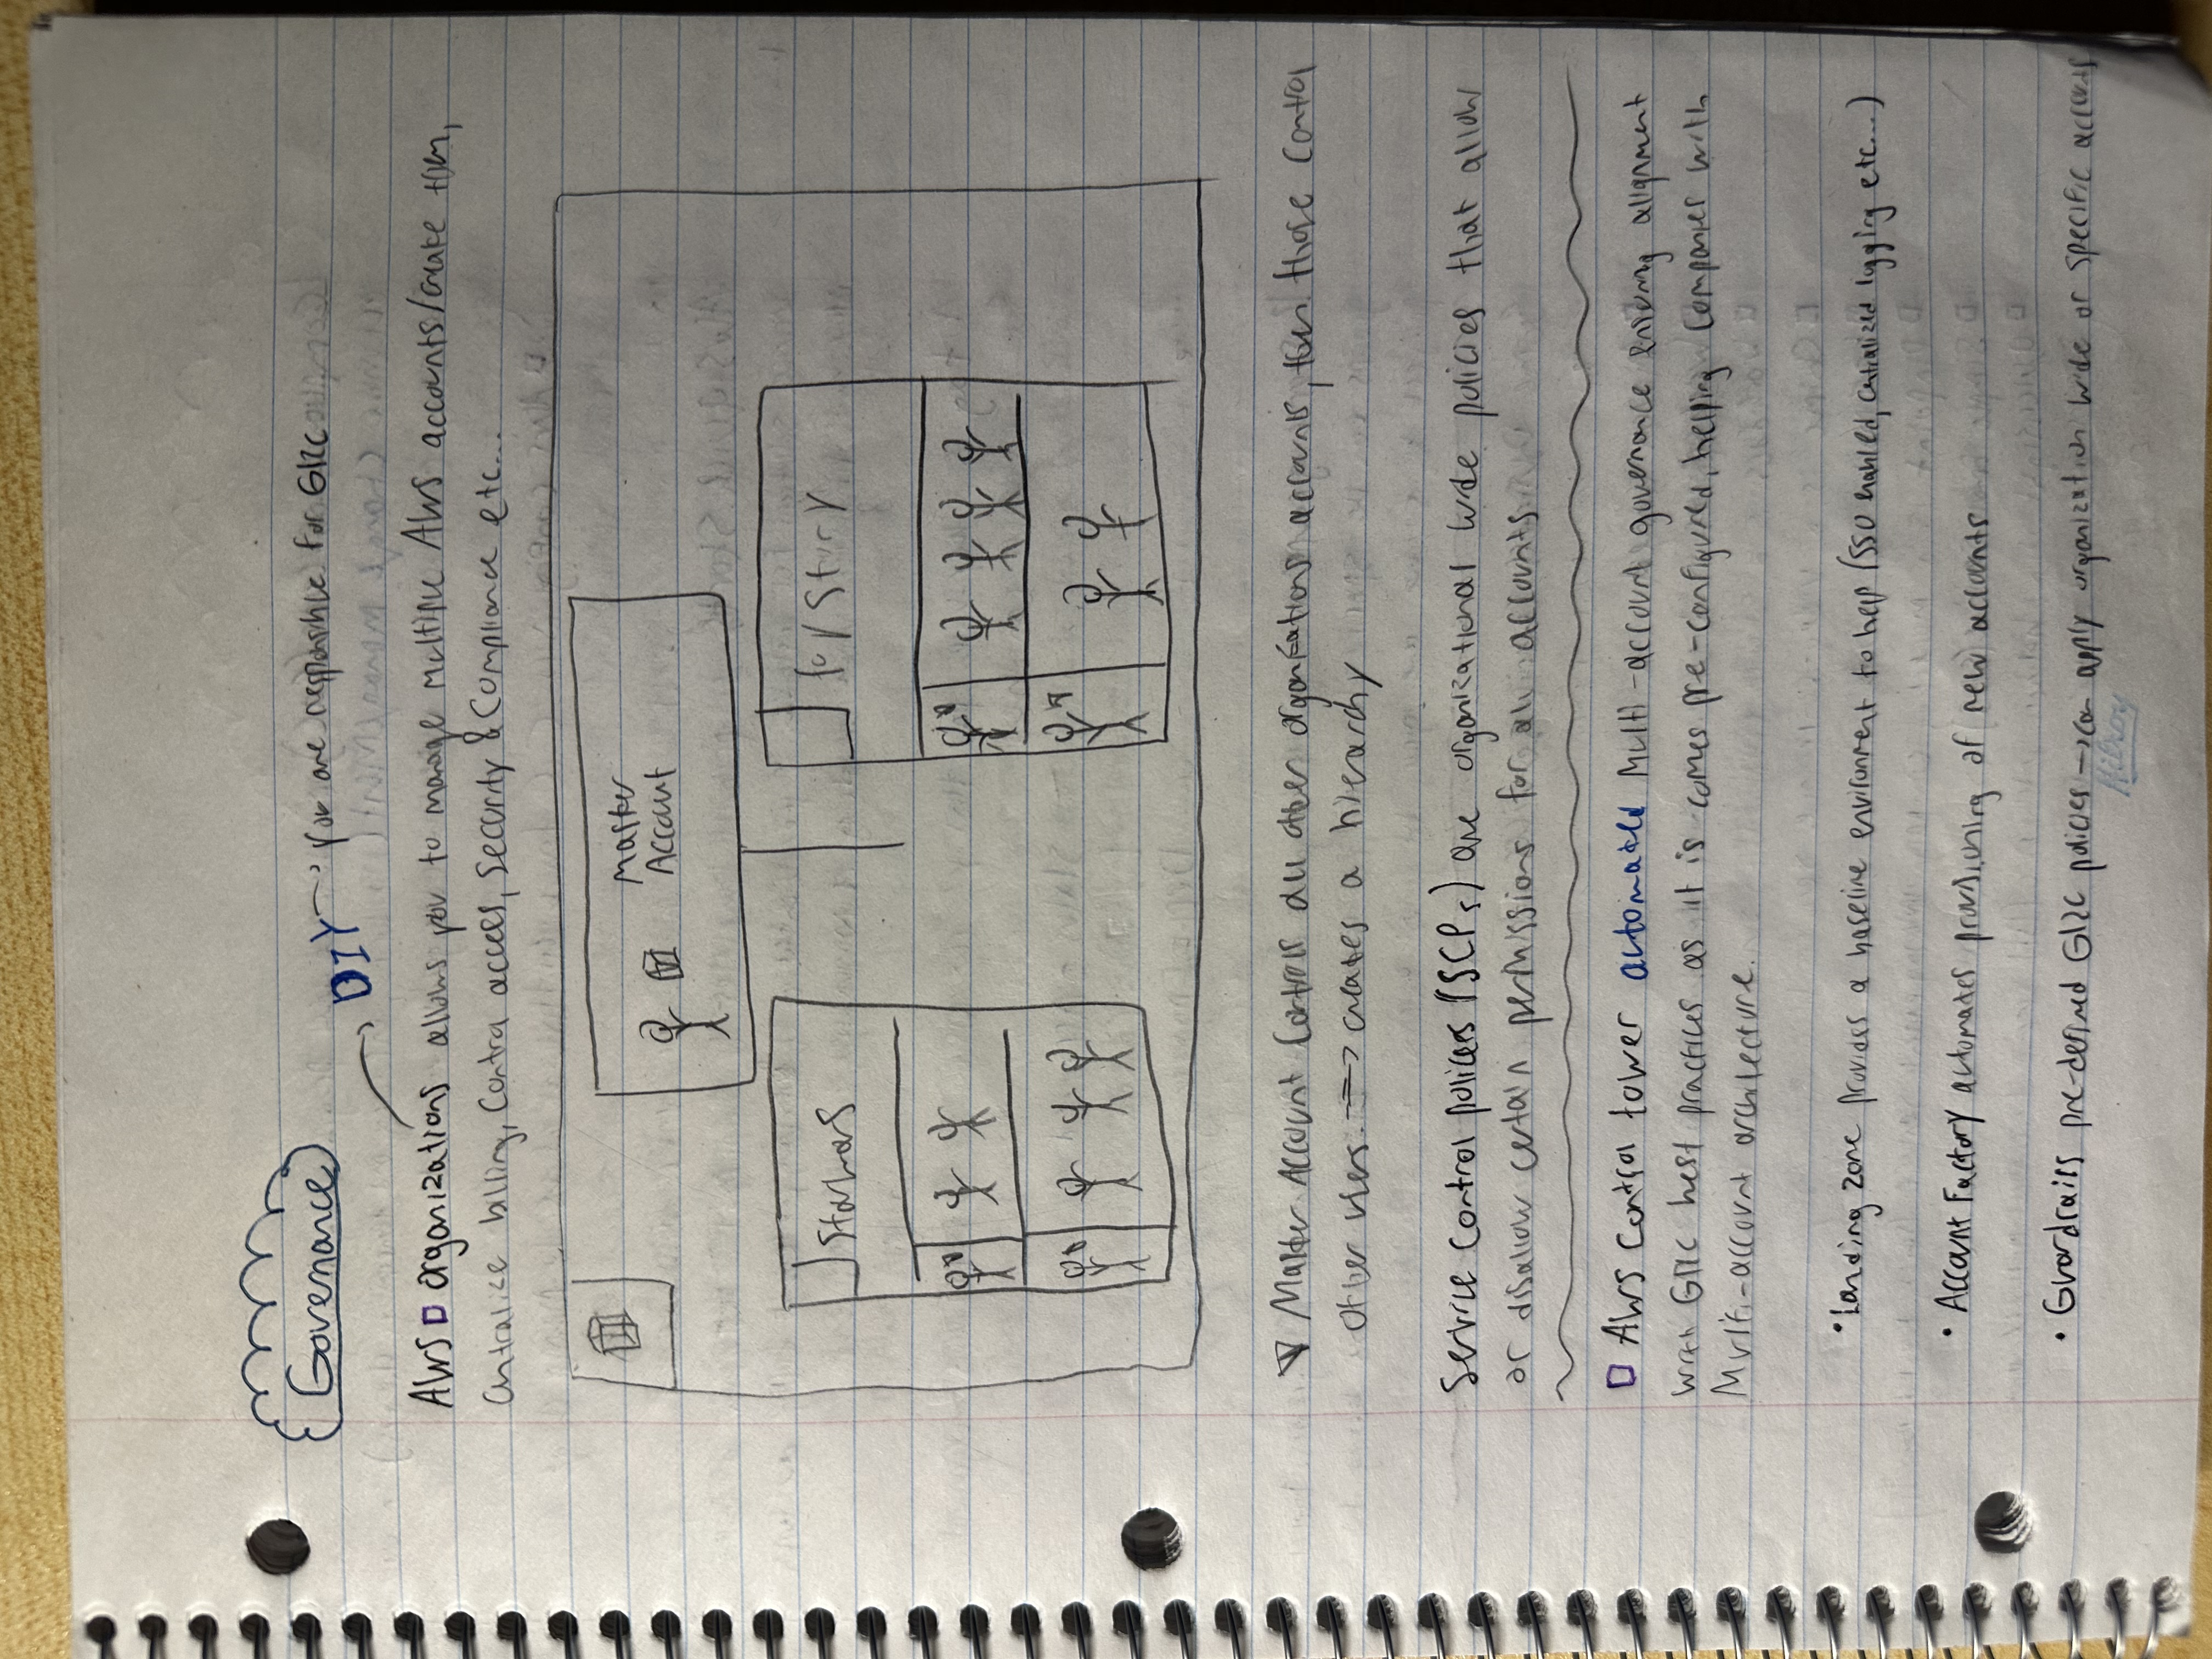 Governance
DIY → you are responsible for GRC
AWS organizations allows you to manage multiple AWS accounts/create them,
centralise billing, Control access, Security & Compliance etc...
Master
Account
Starwars
toy Story
Master Account Controls all other organizations accounts, then those control
other users. => creates a hierarchy
Service Control policies (SCPs) are organizational wide policies that allow
or disallow certain permissions for all accounts
AWS Control tower automated Multi-account governance ensuring alignment
with GRC best practices as it is comes pre-configured, helping Companies with
Multi-account architecture.
• Landing zone provides a baseline environment to help (SSO enabled, centralized logging etc...)
• Account Factory automates provisioning of new accounts
• Guardrails pre-defined GRC policies → can apply organization wide or specific accounts
Hilroy